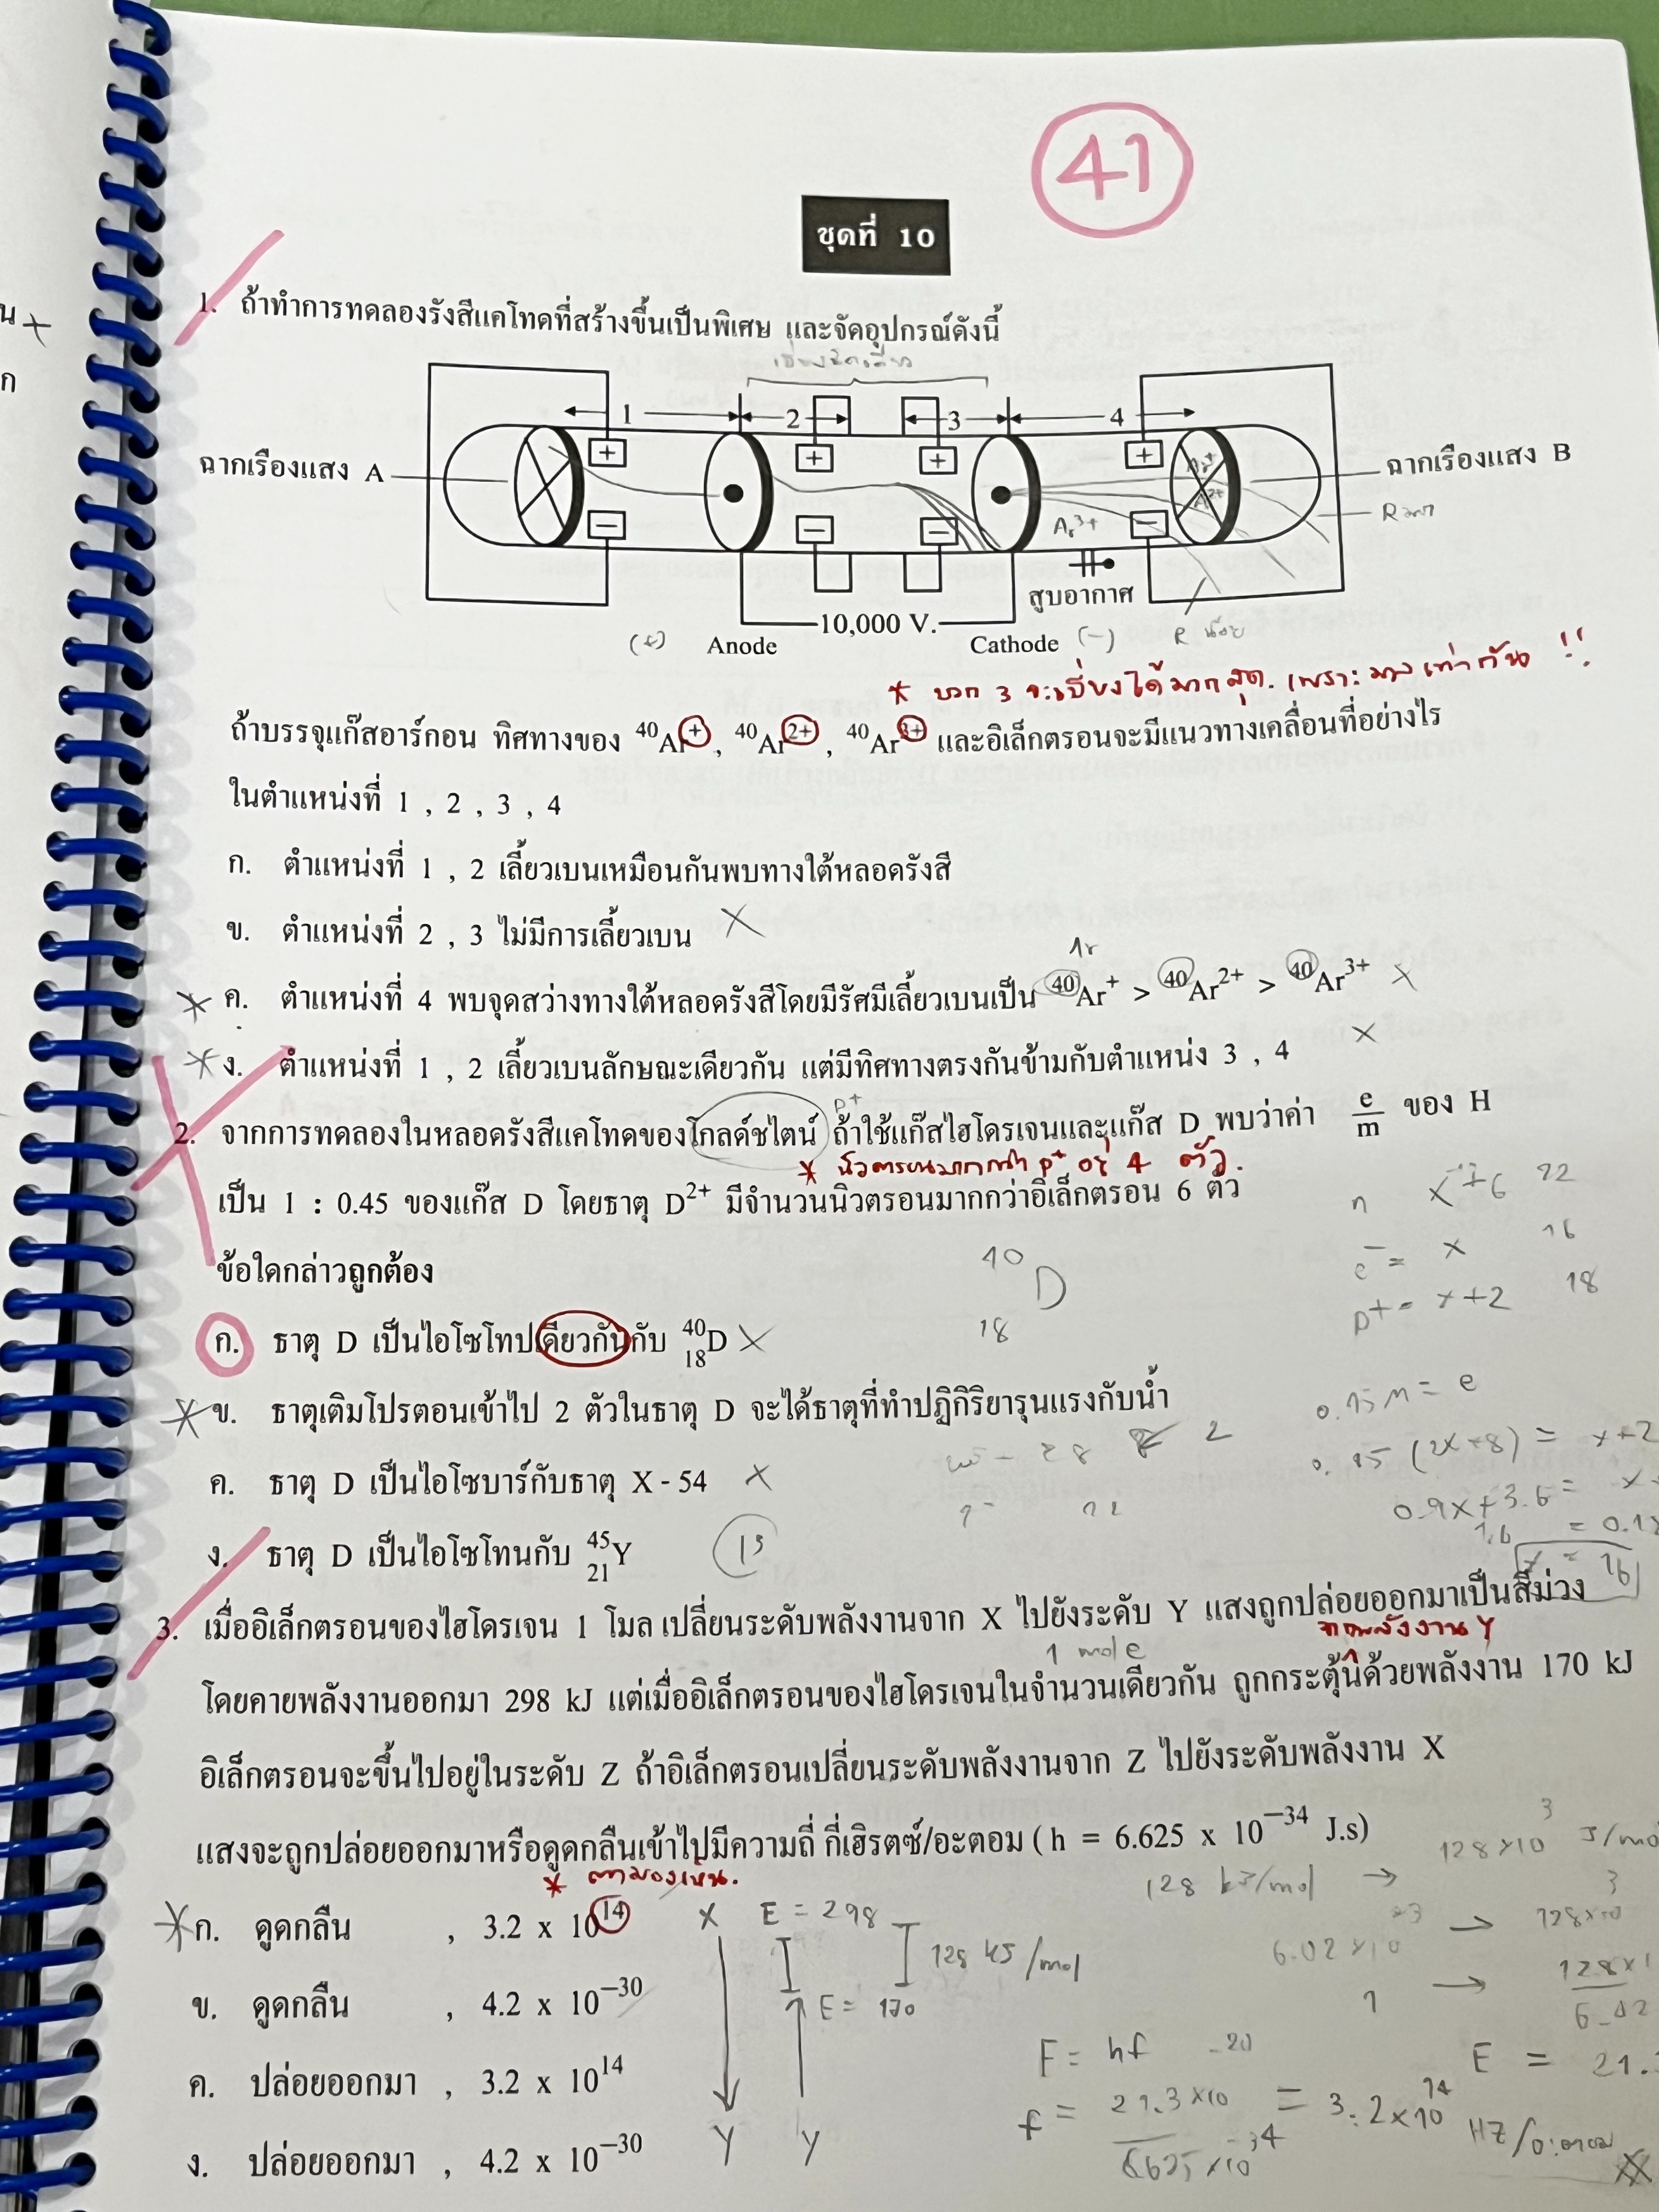 41
ชุดที่ 10
1. ถ้าทำการทดลองรังสีแคโทดที่สร้างขึ้นเป็นพิเศษ และจัดอุปกรณ์ดังนี้
1 2 3 4
ฉากเรืองแสง A
ฉากเรืองแสง B
+ + + +
− − − −
Ar⁺
A²⁺
Ar³⁺
R มาก
สูบอากาศ
R น้อย
10,000 V.
(+) Anode Cathode (−)
* บวก 3 จะเบี่ยงได้มากสุด. เพราะมวลเท่ากัน !!
ถ้าบรรจุแก๊สอาร์กอน ทิศทางของ ⁴⁰Ar⁺, ⁴⁰Ar²⁺, ⁴⁰Ar³⁺ และอิเล็กตรอนจะมีแนวทางเคลื่อนที่อย่างไร
ในตำแหน่งที่ 1 , 2 , 3 , 4
ก. ตำแหน่งที่ 1 , 2 เลี้ยวเบนเหมือนกันพบทางใต้หลอดรังสี
ข. ตำแหน่งที่ 2 , 3 ไม่มีการเลี้ยวเบน
ค. ตำแหน่งที่ 4 พบจุดสว่างทางใต้หลอดรังสีโดยมีรัศมีเลี้ยวเบนเป็น ⁴⁰Ar⁺ > ⁴⁰Ar²⁺ > ⁴⁰Ar³⁺
ง. ตำแหน่งที่ 1 , 2 เลี้ยวเบนลักษณะเดียวกัน แต่มีทิศทางตรงกันข้ามกับตำแหน่ง 3 , 4
p⁺
2. จากการทดลองในหลอดรังสีแคโทดของโกลด์ชไตน์ ถ้าใช้แก๊สไฮโดรเจนและแก๊ส D พบว่าค่า e/m ของ H
* นิวตรอนมากกว่า p⁺ อยู่ 4 ตัว.
เป็น 1 : 0.45 ของแก๊ส D โดยธาตุ D²⁺ มีจำนวนนิวตรอนมากกว่าอิเล็กตรอน 6 ตัว
n x+6 22
e⁻ = x 16
p⁺ = x+2 18
ข้อใดกล่าวถูกต้อง
40 D
18
ก. ธาตุ D เป็นไอโซโทปเดียวกันกับ ⁴⁰₁₈D
ข. ธาตุเติมโปรตอนเข้าไป 2 ตัวในธาตุ D จะได้ธาตุที่ทำปฏิกิริยารุนแรงกับน้ำ
ค. ธาตุ D เป็นไอโซบาร์กับธาตุ X - 54
ง. ธาตุ D เป็นไอโซโทนกับ ⁴⁵₂₁Y
3. เมื่ออิเล็กตรอนของไฮโดรเจน 1 โมล เปลี่ยนระดับพลังงานจาก X ไปยังระดับ Y แสงถูกปล่อยออกมาเป็นสีม่วง
1 mol e
จากพลังงาน Y
โดยคายพลังงานออกมา 298 kJ แต่เมื่ออิเล็กตรอนของไฮโดรเจนในจำนวนเดียวกัน ถูกกระตุ้นด้วยพลังงาน 170 kJ
อิเล็กตรอนจะขึ้นไปอยู่ในระดับ Z ถ้าอิเล็กตรอนเปลี่ยนระดับพลังงานจาก Z ไปยังระดับพลังงาน X
แสงจะถูกปล่อยออกมาหรือดูดกลืนเข้าไปมีความถี่ กี่เฮิรตซ์/อะตอม ( h = 6.625 x 10⁻³⁴ J.s)
* ตามองเห็น.
128 kJ/mol →
ก. ดูดกลืน , 3.2 x 10¹⁴
ข. ดูดกลืน , 4.2 x 10⁻³⁰
ค. ปล่อยออกมา , 3.2 x 10¹⁴
ง. ปล่อยออกมา , 4.2 x 10⁻³⁰
X E = 298
128 kJ/mol
E = 170
Y Y
E = hf
f = 21.3×10⁻²⁰ / 6.625×10⁻³⁴ = 3.2×10¹⁴ Hz/อะตอม